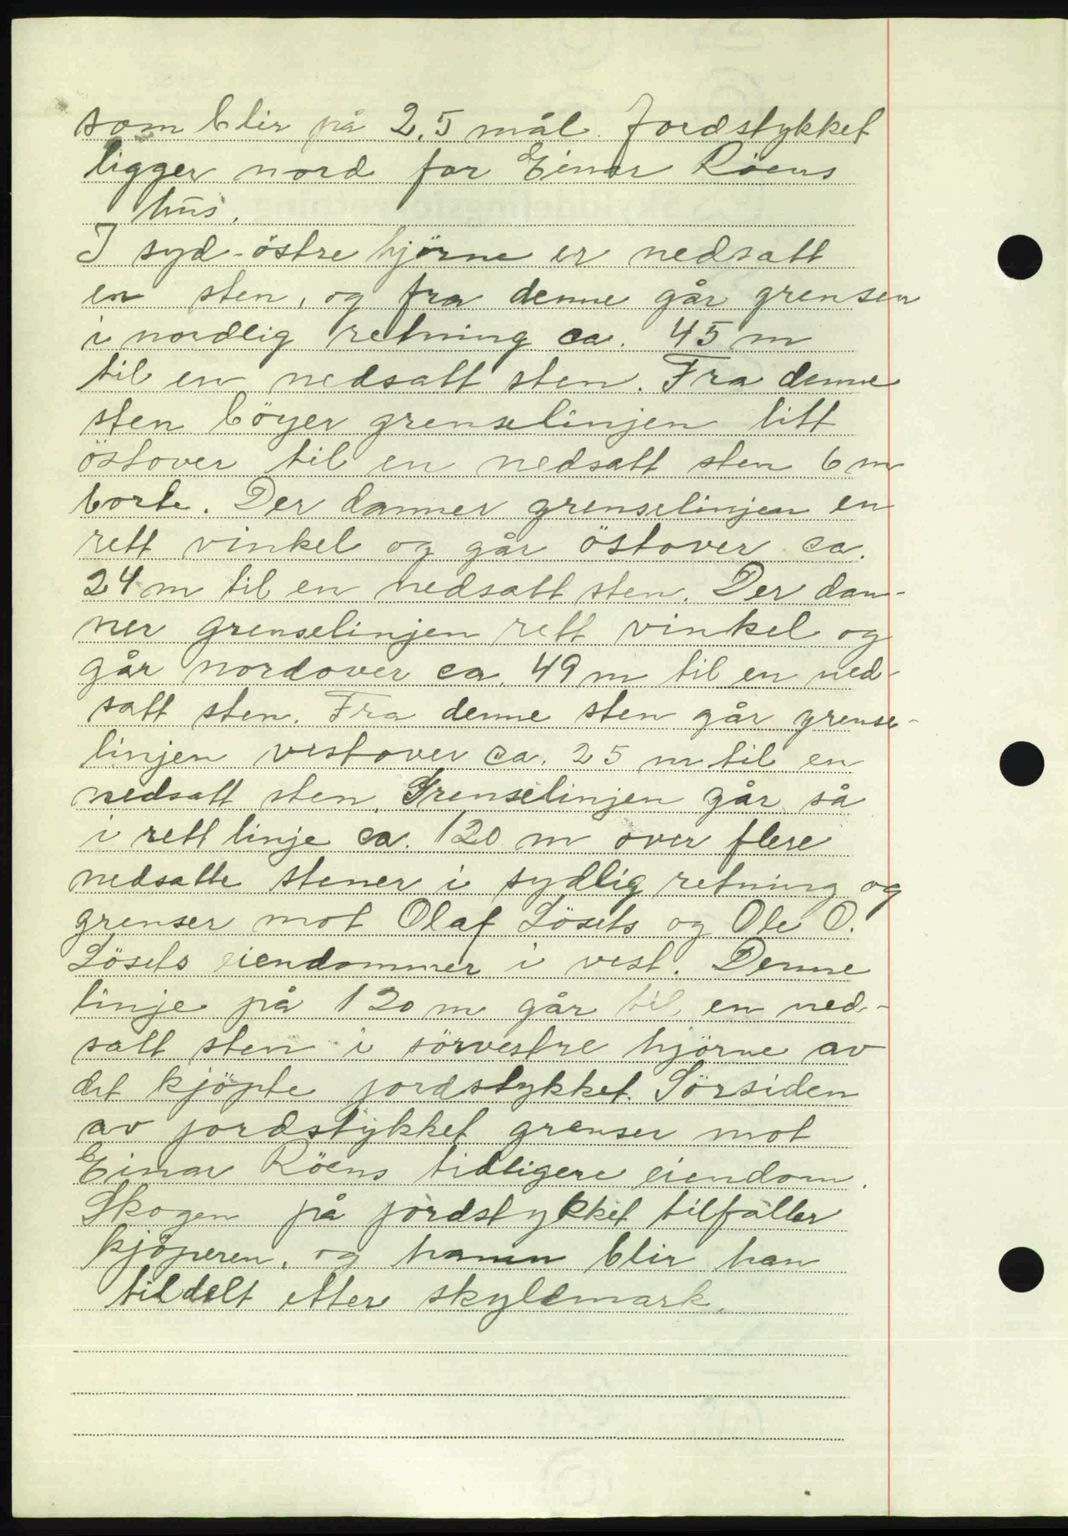 som blir på 2.5 mål. Jordstykket
ligger nord for Einar Röens
hus.
I syd-östre hjörne er nedsatt
en sten, og fra denne går grensen
i nordlig retning ca. 45 m
til en nedsatt sten. Fra denne
sten böyer grenselinjen litt
östover til en nedsatt sten 6 m
borte. Der danner grenselinjen en
rett vinkel og går östover ca.
24 m til en nedsatt sten. Der dan-
ner grenselinjen rett vinkel og
går nordover ca. 49 m til en ned-
satt sten. Fra denne sten går grense-
linjen vestover ca. 25 m til en
nedsatt sten. Grenselinjen går så
i rett linje ca. 120 m over flere
nedsatte stener i sydlig retning og
grenser mot Olaf Lösets og Ole O.
Lösets eiendommer i vest. Denne
linje på 120 m går til en ned-
satt sten i sörvestre hjörne av
det kjöpte jordstykket. Sörsiden
av jordstykket grenser mot
Einar Röens tidligere eiendom.
Skogen på jordstykket tilfaller
kjöperen, og hamn blir han
tildelt etter skyldmark.